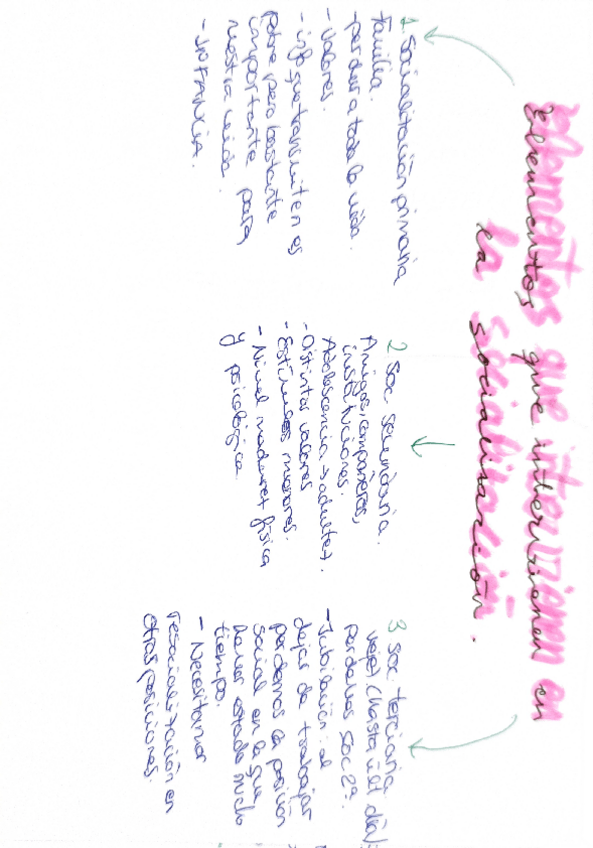 elementos que intervienen en
la socialización.
1. Socialitación primaria
familia.
- perdura toda la vida.
- valores.
- info que transmiten es
pobre pero bastante
importante para
nuestra vida.
- INFANCIA.
2. Soc. secundaria.
Amigos, compañeros,
instituciones.
Adolescencia → adultet.
- Distintos valores
- Estímulos mayores.
- Nivel maduret física
y psicológica
3 Soc. terciaria
vejet. (hasta últ día)
perdemos soc 2ª.
- Jubilación: al
dejar de trabajar
perdemos la posición
social en la que
hemos estado mucho
tiempo.
- Necesitamos
resocialitación en
otras posiciones.